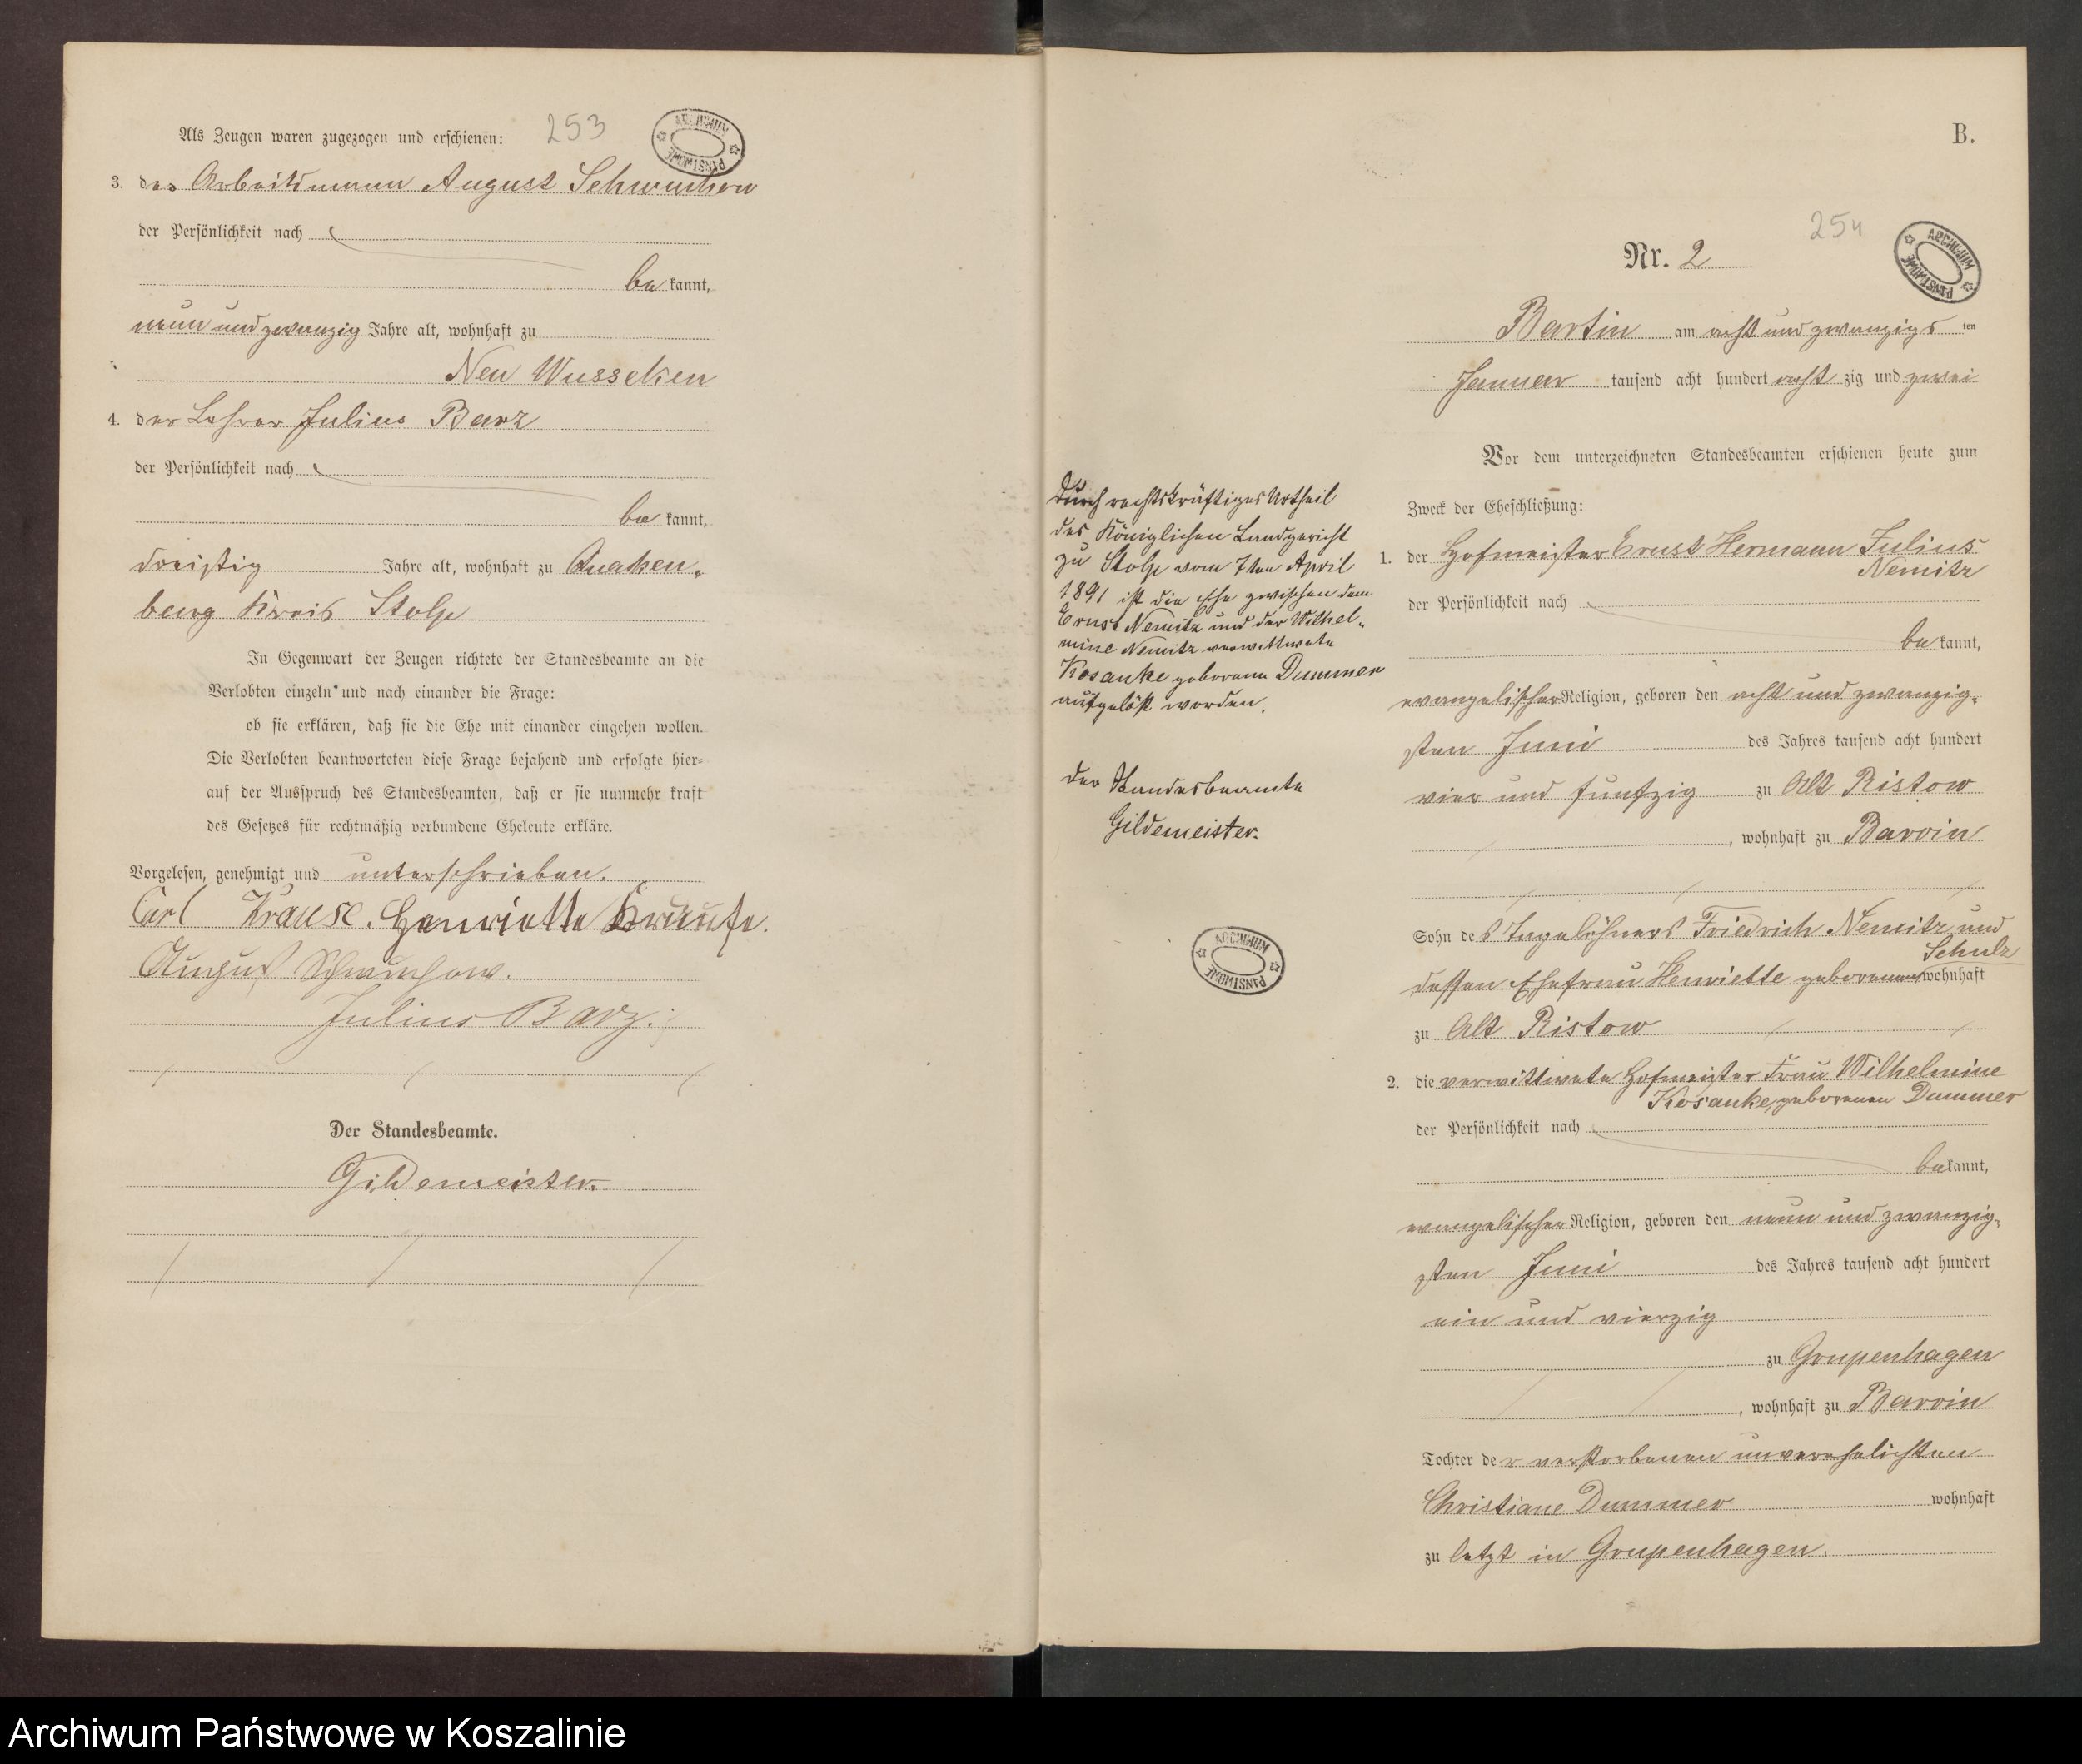 Als Zeugen waren zugezogen und erschienen: 253
ARCHIWUM PAŃSTWOWE
3. der Arbeitsmann August Schwuchow
der Persönlichkeit nach
be kannt,
neun und zwanzig Jahre alt, wohnhaft zu
Neu Wusseken
4. der Lehrer Julius Barz
der Persönlichkeit nach
be kannt,
dreißig Jahre alt, wohnhaft zu Quacken-
burg Kreis Stolp
In Gegenwart der Zeugen richtete der Standesbeamte an die
Verlobten einzeln und nach einander die Frage:
ob sie erklären, daß sie die Ehe mit einander eingehen wollen.
Die Verlobten beantworteten diese Frage bejahend und erfolgte hier-
auf der Ausspruch des Standesbeamten, daß er sie nunmehr kraft
des Gesetzes für rechtmäßig verbundene Eheleute erkläre.
Vorgelesen, genehmigt und unterschrieben.
Carl Krause. Henriette Krause.
August Schwuchow.
Julius Barz.
Der Standesbeamte.
Gildemeister.
B.
254
Nr. 2
ARCHIWUM PAŃSTWOWE
Bartin am acht und zwanzigs ten
Januar tausend acht hundert acht zig und zwei
Vor dem unterzeichneten Standesbeamten erschienen heute zum
Zweck der Eheschließung:
1. der Hofmeister Ernst Hermann Julius
Nemitz
der Persönlichkeit nach
be kannt,
evangelischer Religion, geboren den acht und zwanzig-
sten Juni des Jahres tausend acht hundert
vier und funfzig zu Alt Ristow
, wohnhaft zu Barvin
Sohn des Tagelöhners Friedrich Nemitz und
Schulz
dessen Ehefrau Henriette geborenen wohnhaft
zu Alt Ristow
2. die verwittwete Hofmeister Frau Wilhelmine
Kosanke, geborenen Dummer
der Persönlichkeit nach
be kannt,
evangelischer Religion, geboren den neun und zwanzig-
sten Juni des Jahres tausend acht hundert
ein und vierzig
zu Grupenhagen
, wohnhaft zu Barvin
Tochter der verstorbenen unverehelichten
Christiane Dummer wohnhaft
zu letzt in Grupenhagen.
Durch rechtskräftiges Urtheil
des Königlichen Landgericht
zu Stolp vom 7ten April
1891 ist die Ehe zwischen dem
Ernst Nemitz und der Wilhel-
mine Nemitz verwittwete
Kosanke geborene Dummer
aufgelöst worden.
Der Standesbeamte
Gildemeister.
ARCHIWUM PAŃSTWOWE
Archiwum Państwowe w Koszalinie